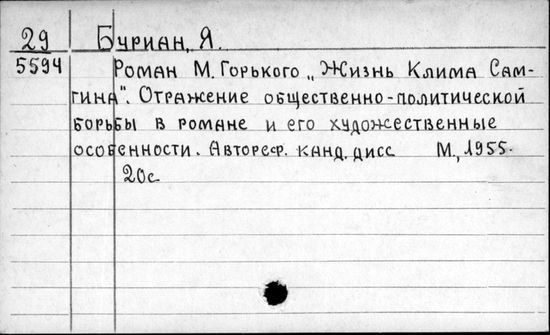 29 Буриан, Я.
5594 Роман М. Горького „Жизнь Клима Сам-
гина". Отражение общественно-политической
борьбы в романе и его художественные
особенности. Автореф. канд. дисс М., 1955.
20с